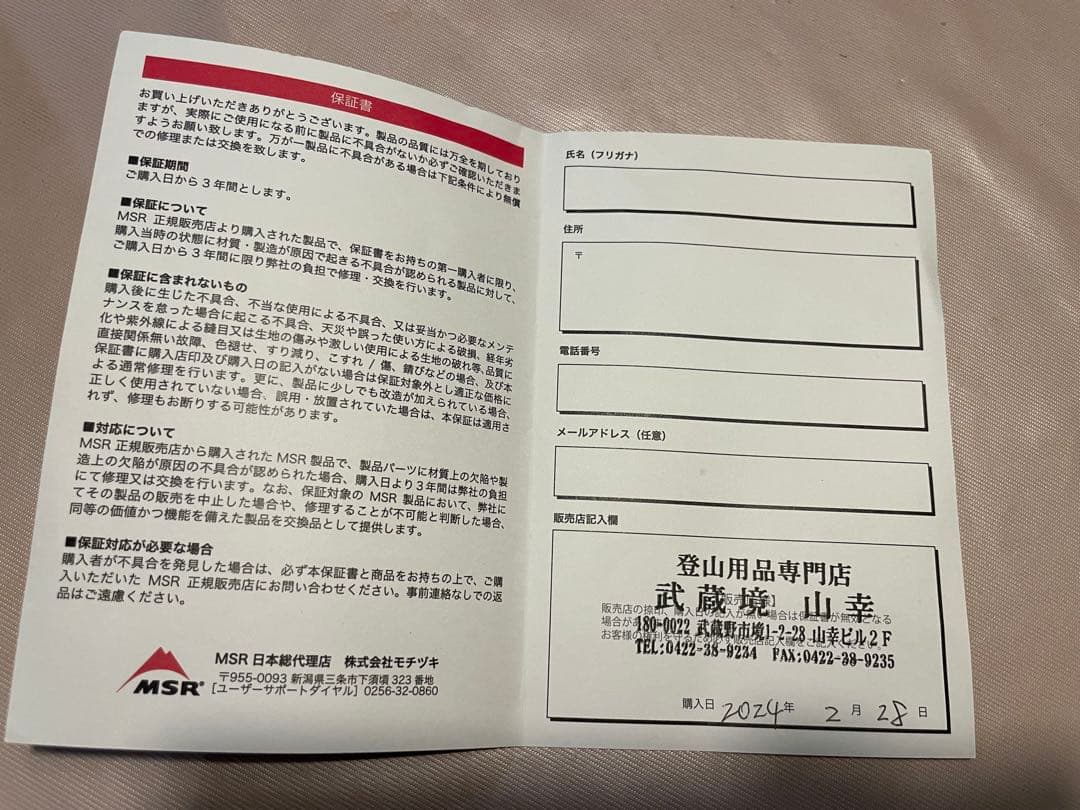 保証書
お買い上げいただきありがとうございます。製品の品質には万全を期しており
ますが、実際にご使用になる前に製品に不具合がないか必ずご確認いただきま
すようお願い致します。万が一製品に不具合がある場合は下記条件により無償
での修理または交換を致します。
■保証期間
ご購入日から3年間とします。
■保証について
MSR 正規販売店より購入された製品で、保証書をお持ちの第一購入者に限り、
購入当時の状態に材質・製造が原因で起きる不具合が認められる製品に対して、
ご購入日から3年間に限り弊社の負担で修理・交換を行います。
■保証に含まれないもの
購入後に生じた不具合、不当な使用による不具合、又は妥当かつ必要なメンテ
ナンスを怠った場合に起こる不具合、天災や誤った使い方による破損、経年劣
化や紫外線による縫目又は生地の傷みや激しい使用による生地の破れ等、品質に
直接関係無い故障、色褪せ、すり減り、こすれ / 傷、錆びなどの場合、及び本
保証書に購入店印及び購入日の記入がない場合は保証対象外とし適正な価格に
よる通常修理を行います。更に、製品に少しでも改造が加えられている場合、
正しく使用されていない場合、誤用・放置されていた場合は、本保証は適用さ
れず、修理もお断りする可能性があります。
■対応について
MSR 正規販売店から購入された MSR 製品で、製品パーツに材質上の欠陥や製
造上の欠陥が原因の不具合が認められた場合、購入日より3年間は弊社の負担
にて修理又は交換を行います。なお、保証対象の MSR 製品において、弊社に
てその製品の販売を中止した場合や、修理することが不可能と判断した場合、
同等の価値かつ機能を備えた製品を交換品として提供します。
■保証対応が必要な場合
購入者が不具合を発見した場合は、必ず本保証書と商品をお持ちの上で、ご購
入いただいた MSR 正規販売店にお問い合わせください。事前連絡なしでの返
品はご遠慮ください。
MSR
MSR 日本総代理店 株式会社モチヅキ
〒955-0093 新潟県三条市下須頃 323 番地
[ユーザーサポートダイヤル] 0256-32-0860
氏名（フリガナ）
住所
〒
電話番号
メールアドレス（任意）
販売店記入欄
登山用品専門店
武蔵境 山幸
販売店の捺印、購入日の記入が無い場合は保証書が無効となる
180-0022 武蔵野市境1-2-28 山幸ビル2F
TEL:0422-38-9234 FAX:0422-38-9235
購入日 2024年 2月 28日